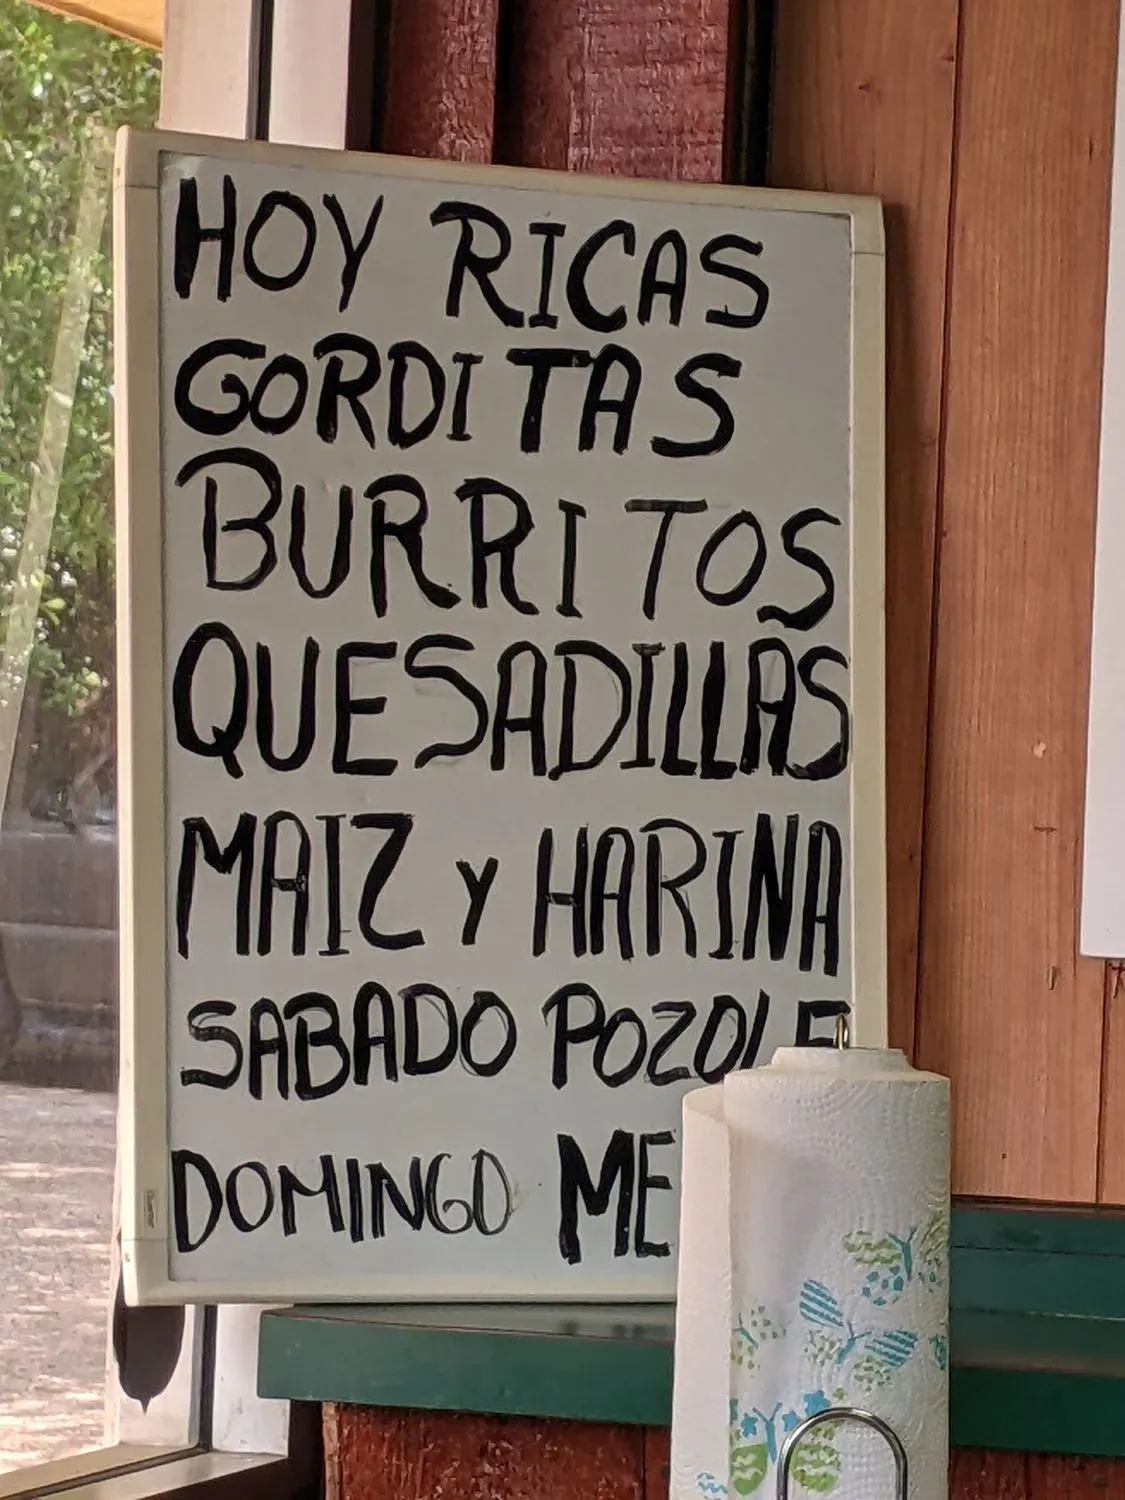 HOY RICAS
GORDITAS
BURRITOS
QUESADILLAS
MAIZ Y HARINA
SABADO POZOLE
DOMINGO ME